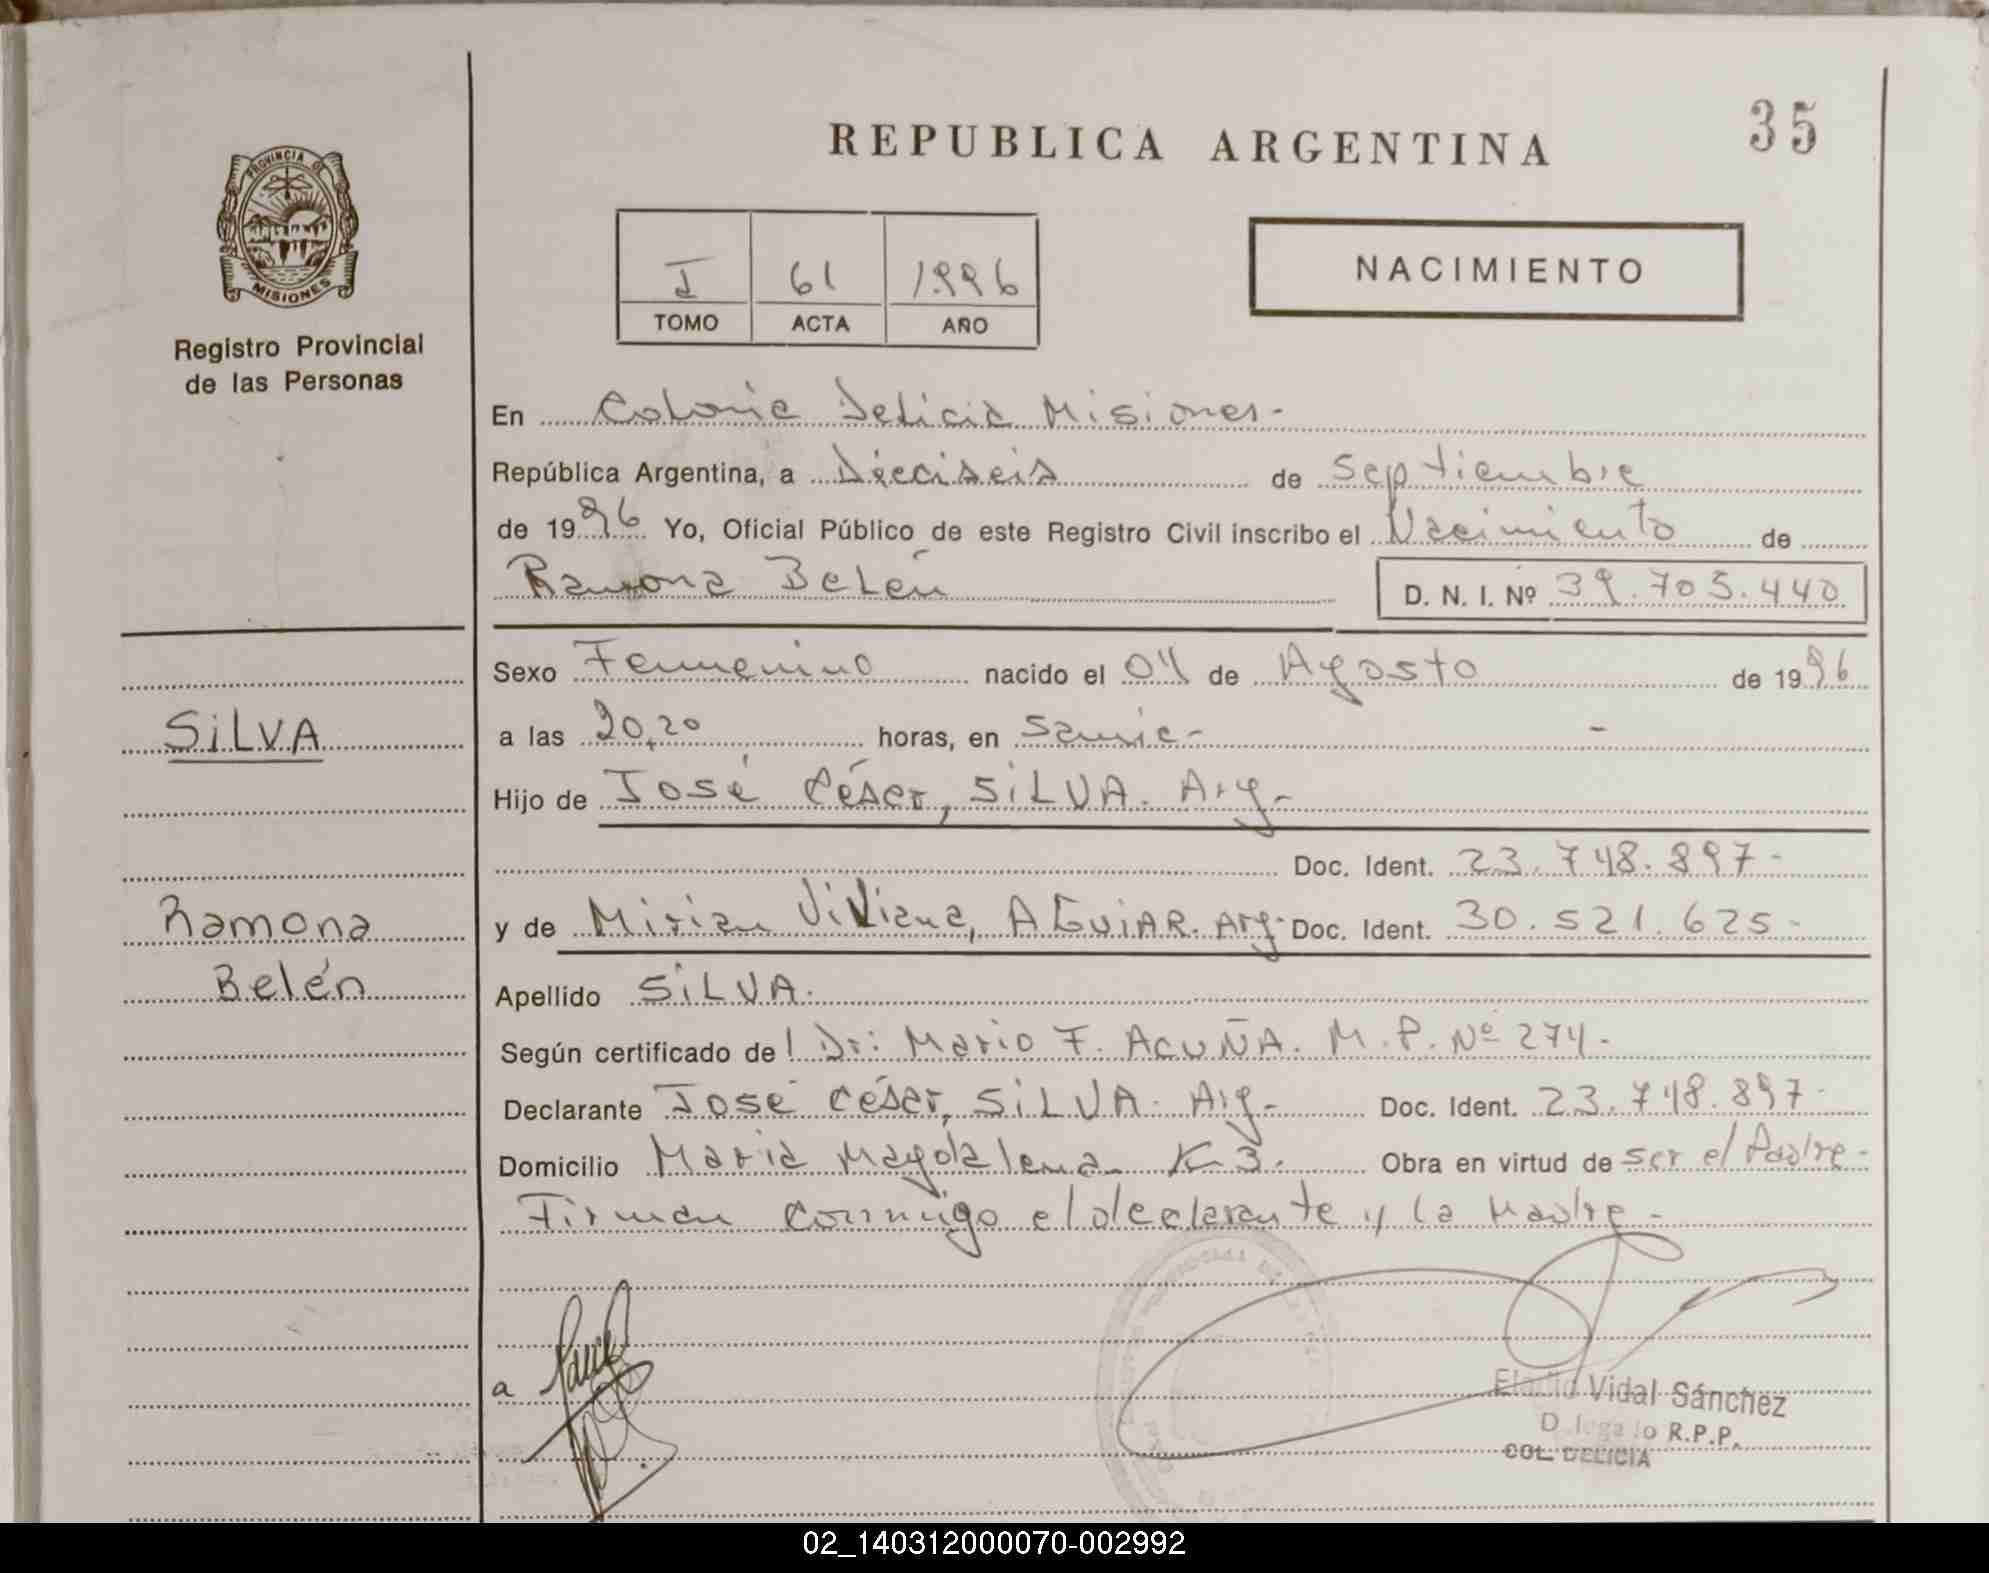 35
REPUBLICA ARGENTINA
PROVINCIA DE
MISIONES
Registro Provincial
de las Personas
I 61 1996
TOMO ACTA AÑO
NACIMIENTO
En Colonia Delicia Misiones-
República Argentina, a Dieciseis de Septiembre
de 1996 Yo, Oficial Público de este Registro Civil inscribo el Nacimiento de
Ramona Belén D. N. I. Nº 39.705.440
Sexo Femenino nacido el 04 de Agosto de 1996
SILVA
a las 20,20 horas, en
Hijo de José César, SILVA. Arg-
Doc. Ident. 23.748.897-
Ramona
y de Mirian Viviana, AGUIAR. Arg- Doc. Ident. 30.521.625-
Belén
Apellido SILVA.
Según certificado de l Dr: Mario F. ACUÑA. M.P. Nº 274-
Declarante José César, SILVA. Arg- Doc. Ident. 23.748.897-
Domicilio Maria Magdalena K 3. Obra en virtud de ser el Padre-
Firman conmigo el declarante y la Madre-
a
Eladio Vidal Sánchez
Delegado R.P.P.
COL. DELICIA
02_140312000070-002992